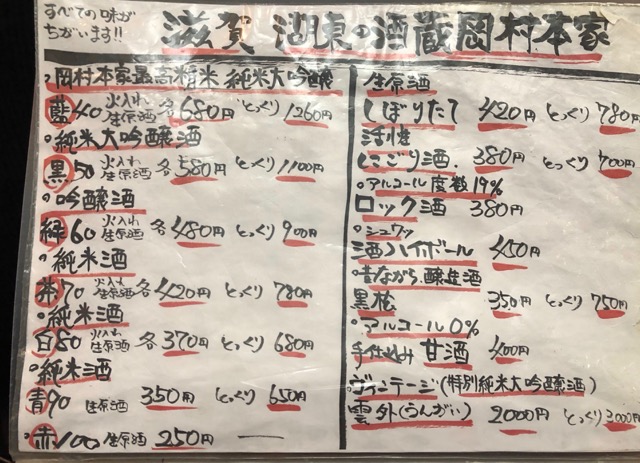 すべての味が
ちがいます!!
滋賀 湖東の酒蔵岡村本家
・岡村本家最高精米 純米大吟醸
藍40 火入れ 生原酒 各680円 とっくり 1260円
・純米大吟醸酒
黒50 火入れ 生原酒 各580円 とっくり 1100円
・吟醸酒
緑60 火入れ 生原酒 各480円 とっくり 900円
・純米酒
茶70 火入れ 生原酒 各420円 とっくり 780円
・純米酒
白80 火入れ 生原酒 各370円 とっくり 680円
・純米酒
青90 生原酒 350円 とっくり 650円
・赤100 生原酒 250円 ―
生原酒
しぼりたて 420円 とっくり 780円
活性
にごり酒. 380円 とっくり 700円
・アルコール度数19%
ロック酒 380円
・シュワッ
酒ハイボール 450円
・昔ながら.醸造酒
黒松 350円 とっくり 750円
・アルコール0%
手仕込み 甘酒 400円
・ヴィンテージ(特別純米大吟醸酒)
雲外(うんがい) 2000円 とっくり 3,000円